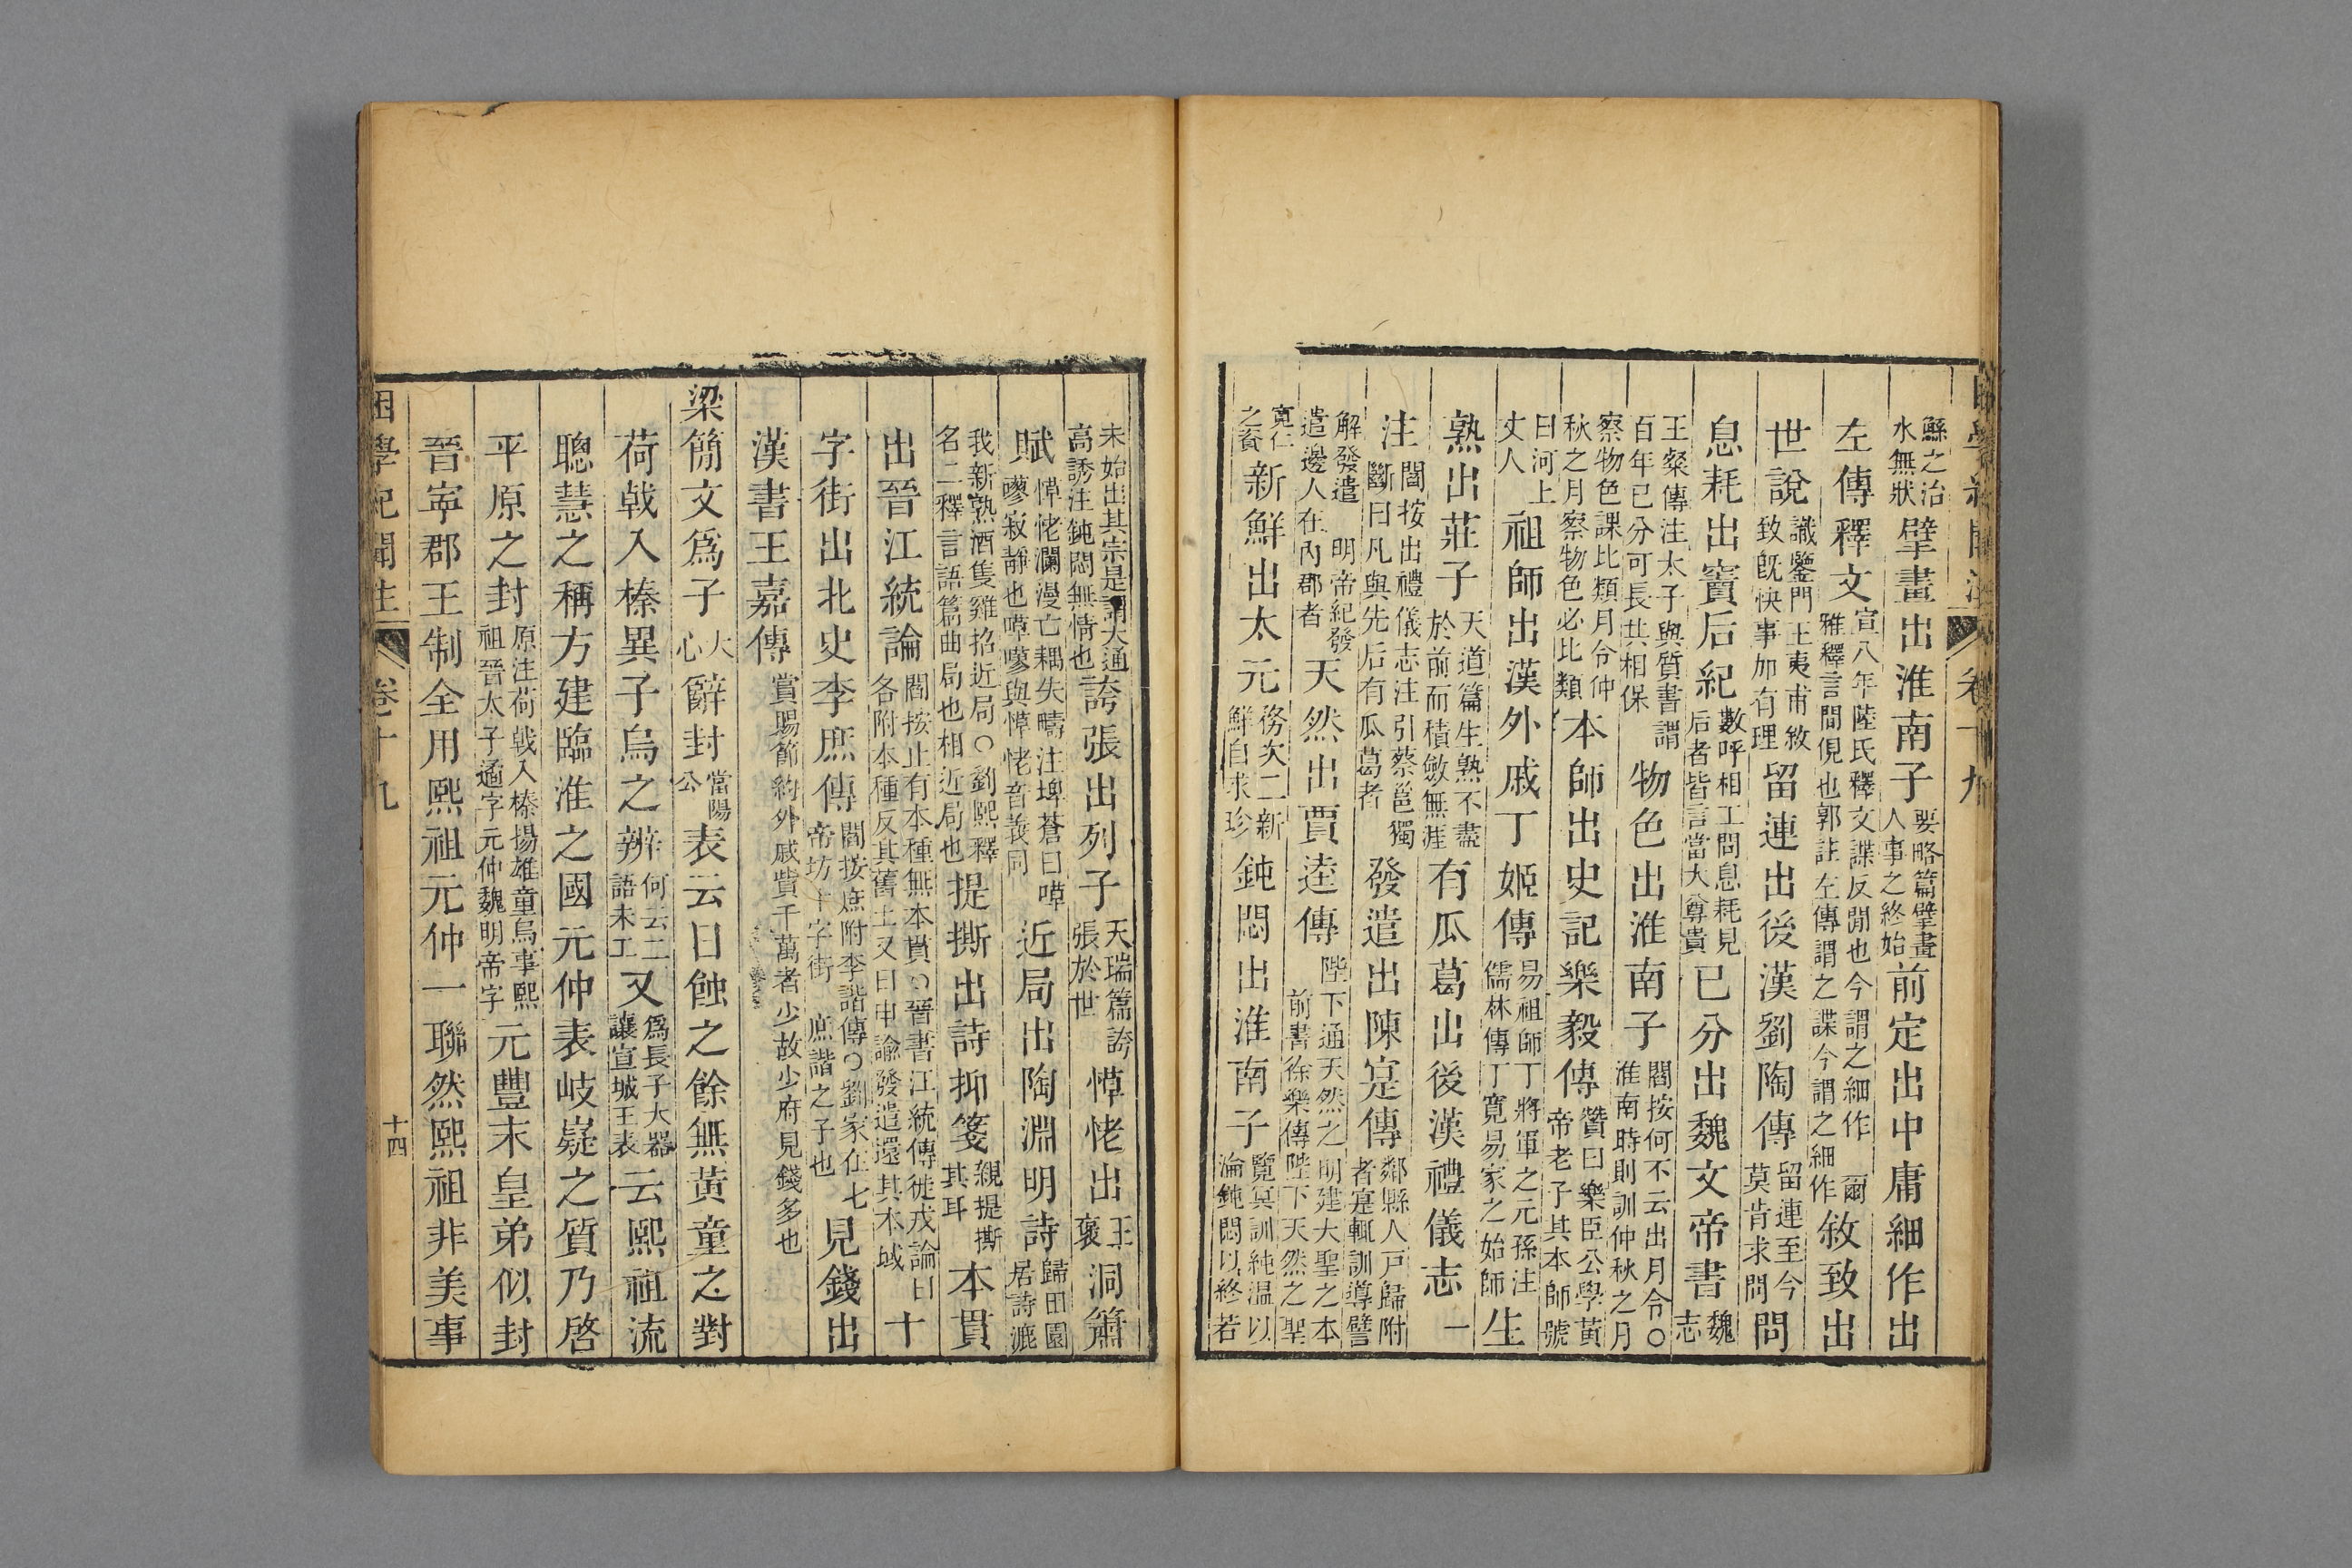 困學紀聞注 卷十九
鯀之治水無狀擘畫出淮南子要略篇擘畫人事之終始前定出中庸細作出
左傳釋文宣八年陸氏釋文諜反間也今謂之細作爾雅釋言間俔也郭註左傳謂之諜今謂之細作敘致出
世說識鑒門王夷甫敘致既快事加有理留連出後漢劉陶傳留連至今莫肯求問問
息耗出竇后紀數呼相工問息耗見后者皆言當大尊貴已分出魏文帝書魏志
王粲傳注太子與質書謂百年已分可長共相保物色出淮南子閻按何不云出月令○淮南時則訓仲秋之月
察物色課比類月令仲秋之月察物色必比類本師出史記樂毅傳贊曰樂臣公學黃帝老子其本師號
曰河上丈人祖師出漢外戚丁姬傳易祖師丁將軍之元孫注儒林傳丁寬易家之始師生
熟出莊子天道篇生熟不盡於前而積斂無涯有瓜葛出後漢禮儀志一
注閻按出禮儀志注引蔡邕獨斷曰凡與先后有瓜葛者發遣出陳寔傳鄰縣人戸歸附者寔輒訓導譬
解發遣 明帝紀發遣邊人在內郡者天然出賈逵傳陛下通天然之明建大聖之本前書徐樂傳陛下天然之聖
寬仁之資新鮮出太元務次二新鮮自求珍鈍悶出淮南子覽冥訓純温以淪鈍悶以終若
未始出其宗是謂大通高誘注鈍悶無情也誇張出列子天瑞篇誇張於世愺恅出王褒洞簫
賦愺恅瀾漫亡耦失疇注埤蒼曰嘽嘐寂靜也嘽嘐與愺恅音義同近局出陶淵明詩歸田園居詩漉
我新熟酒隻雞招近局○劉熙釋名二釋言語篇曲局也相近局也提撕出詩抑箋親提撕其耳本貫
出晉江統論閻按止有本種無本貫○晉書江統傳徙戎論曰各附本種反其舊土又曰申諭發遣還其本域十
字街出北史李庶傳閻按庶附李諧傳○劉家在七帝坊十字街 庶諧之子也見錢出
漢書王嘉傳賞賜節約外戚貲千萬者少故少府見錢多也
梁簡文爲子大心辭封當陽公表云日蝕之餘無黃童之對
荷戟入榛異子烏之辨何云二語未工又爲長子大器讓宣城王表云熙祖流
聰慧之稱方建臨淮之國元仲表岐嶷之質乃啓
平原之封原注荷戟入榛揚雄童烏事熙祖晉太子遹字元仲魏明帝字元豐末皇弟似封
晉寧郡王制全用熙祖元仲一聯然熙祖非美事
困學紀聞注 卷十九 十四